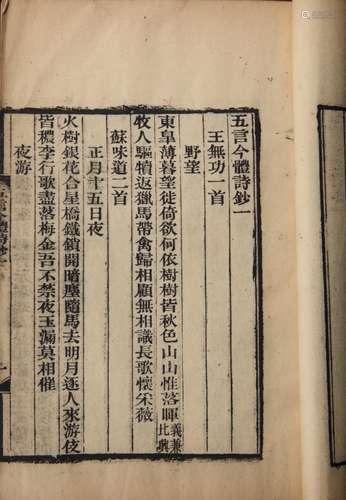 五言今體詩鈔一
王無功一首
野望
東皐薄暮望徙倚欲何依樹樹皆秋色山山惟落暉義兼比興
牧人驅犢返獵馬帶禽歸相顧無相識長歌懷采薇
蘇味道二首
正月十五日夜
火樹銀花合星橋鐵鎖開暗塵隨馬去明月逐人來游伎
皆穠李行歌盡落梅金吾不禁夜玉漏莫相催
夜游